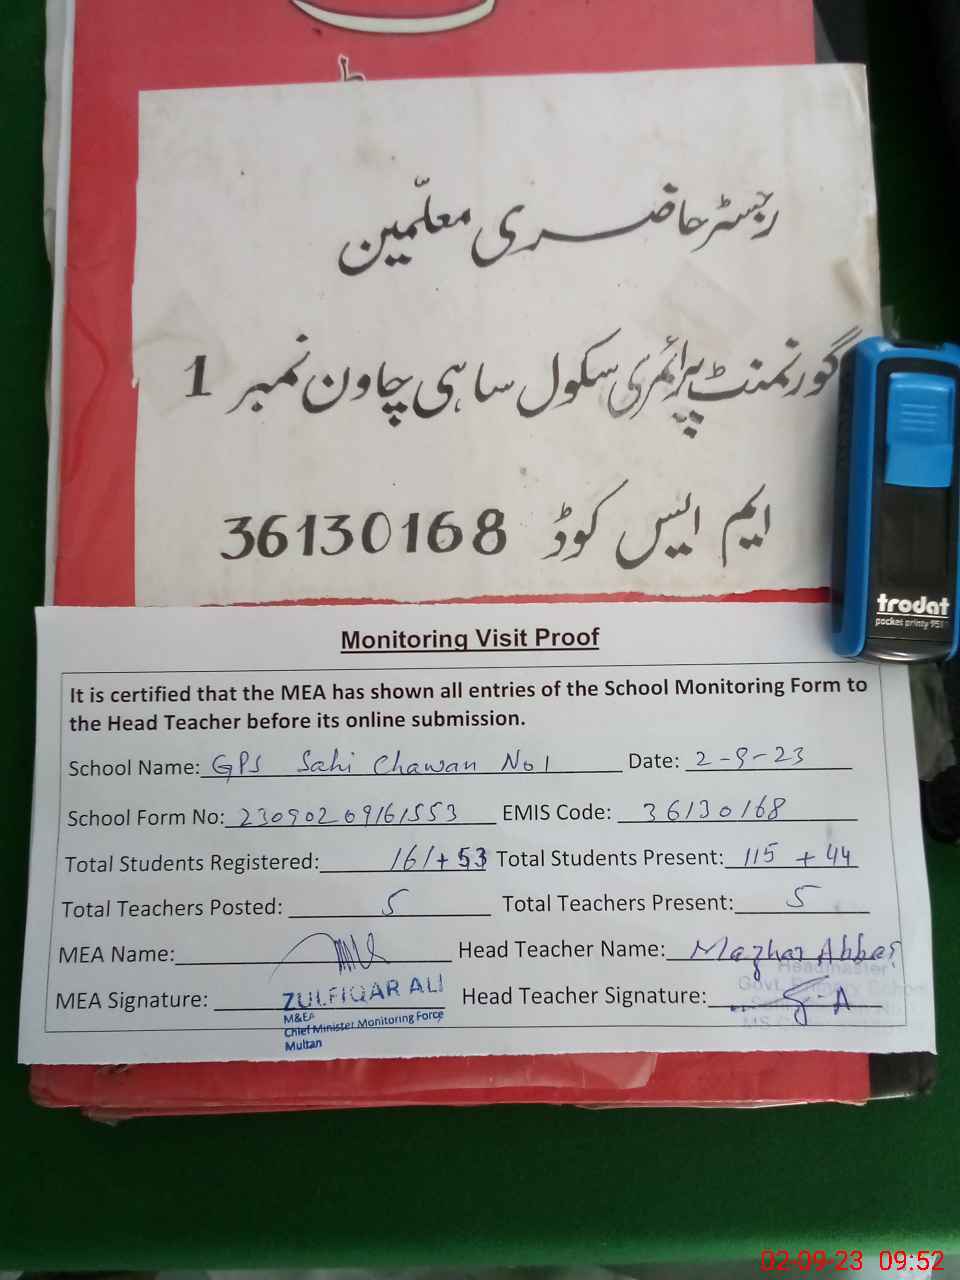 رجسٹر حاضری معلّمین
گورنمنٹ پرائمری سکول ساہی چاون نمبر 1
ایم ایس کوڈ 36130168
trodat
pocket printy 951
Monitoring Visit Proof
It is certified that the MEA has shown all entries of the School Monitoring Form to
the Head Teacher before its online submission.
School Name: GPS Sahi Chawan No 1 Date: 2-9-23
School Form No: 23090209161553 EMIS Code: 36130168
Total Students Registered: 161+53 Total Students Present: 115 + 44
Total Teachers Posted: 5 Total Teachers Present: 5
MEA Name: Head Teacher Name: Mazhar Abbas
Headmaster
MEA Signature: ZULFIQAR ALI Head Teacher Signature:
Govt. Primary School
M&EA
Chief Minister Monitoring Force
Multan
02-09-23 09:52